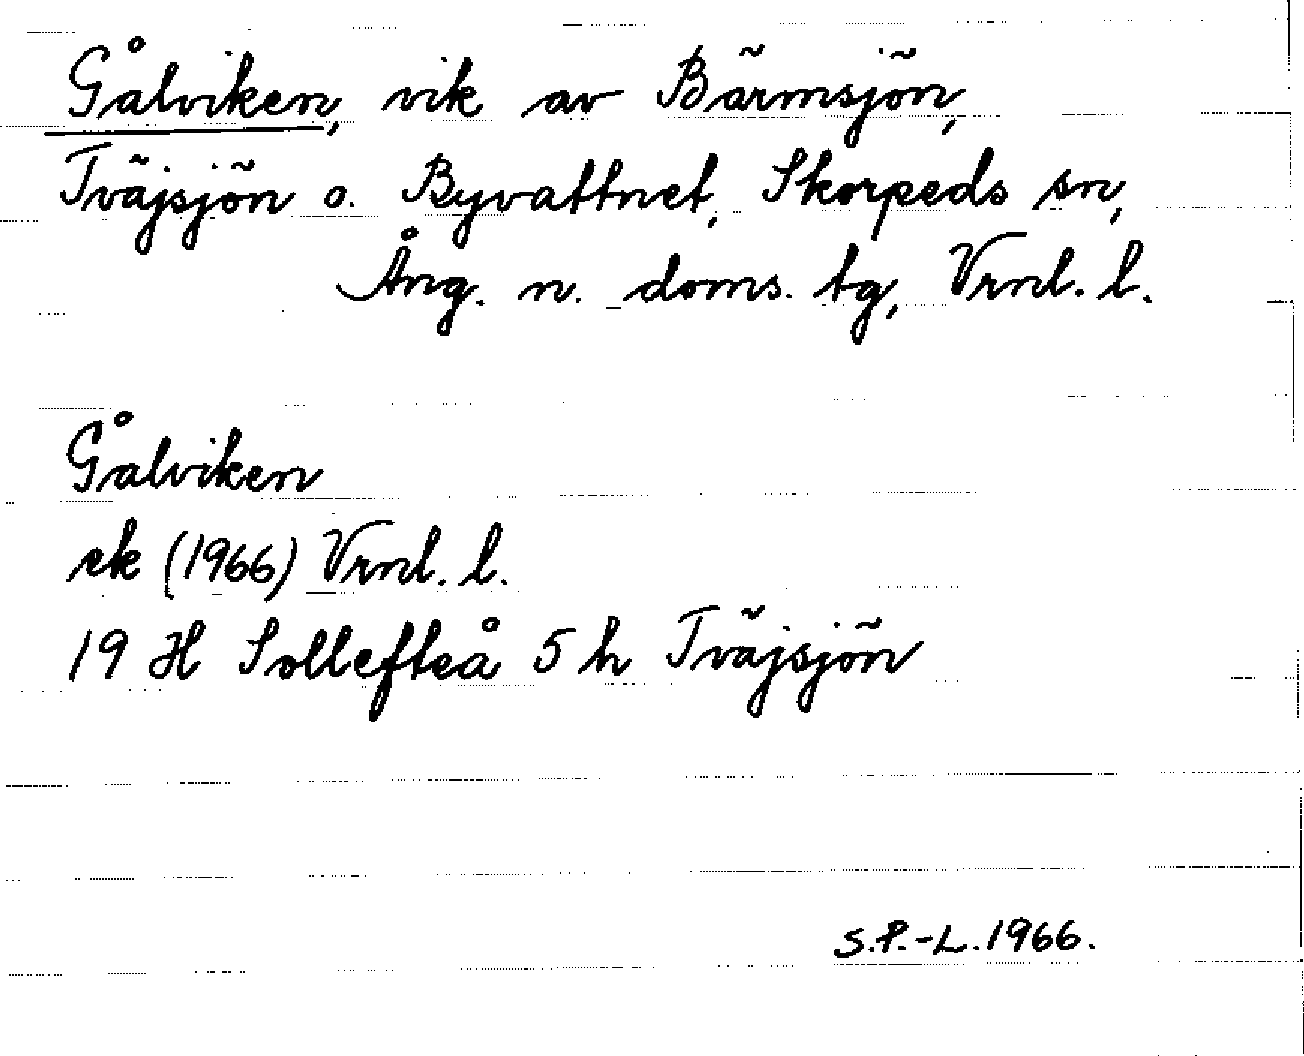 Gålviken, vik av Bärmsjön,
Tväjsjön o. Byvattnet, Skorpeds sn,
Ång. n. doms. tg, Vrnl. l.
Gålviken
ek (1966) Vrnl. l.
19 H Sollefteå 5 h Tväjsjön
S.P.-L. 1966.